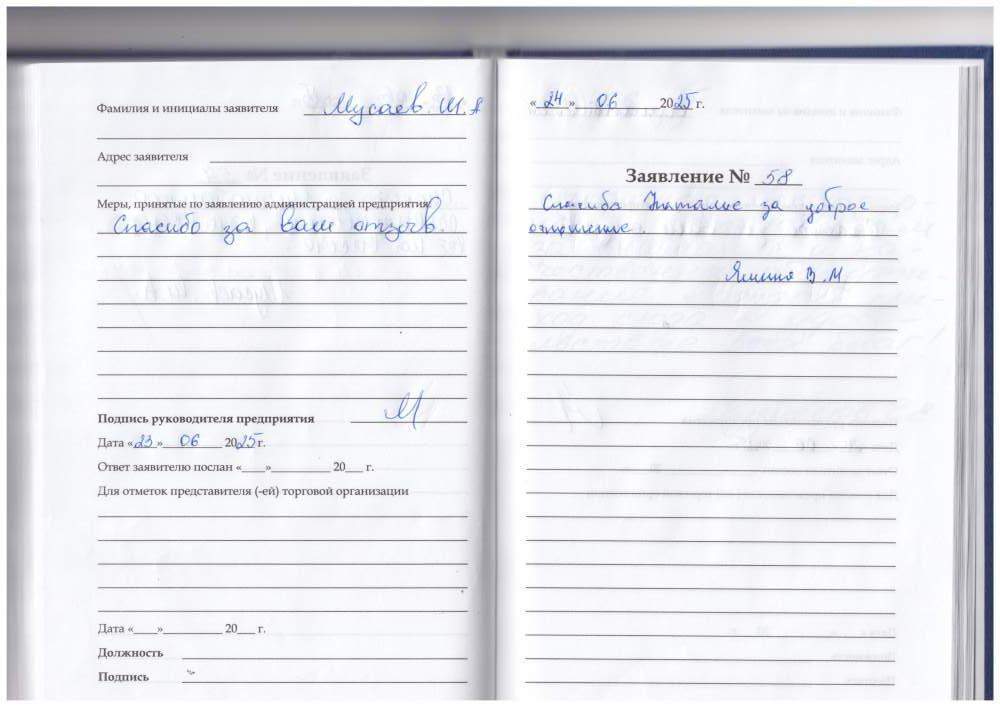 Фамилия и инициалы заявителя Мусаев Ш. А
Адрес заявителя
Меры, принятые по заявлению администрацией предприятия:
Спасибо за ваш отзыв.
Подпись руководителя предприятия
Дата «23» 06 2025 г.
Ответ заявителю послан «____»__________ 20___ г.
Для отметок представителя (-ей) торговой организации
Дата «____»__________ 20___ г.
Должность
Подпись
«24» 06 2025 г.
Заявление № 58
Спасибо Наталье за доброе
отношение.
В. М